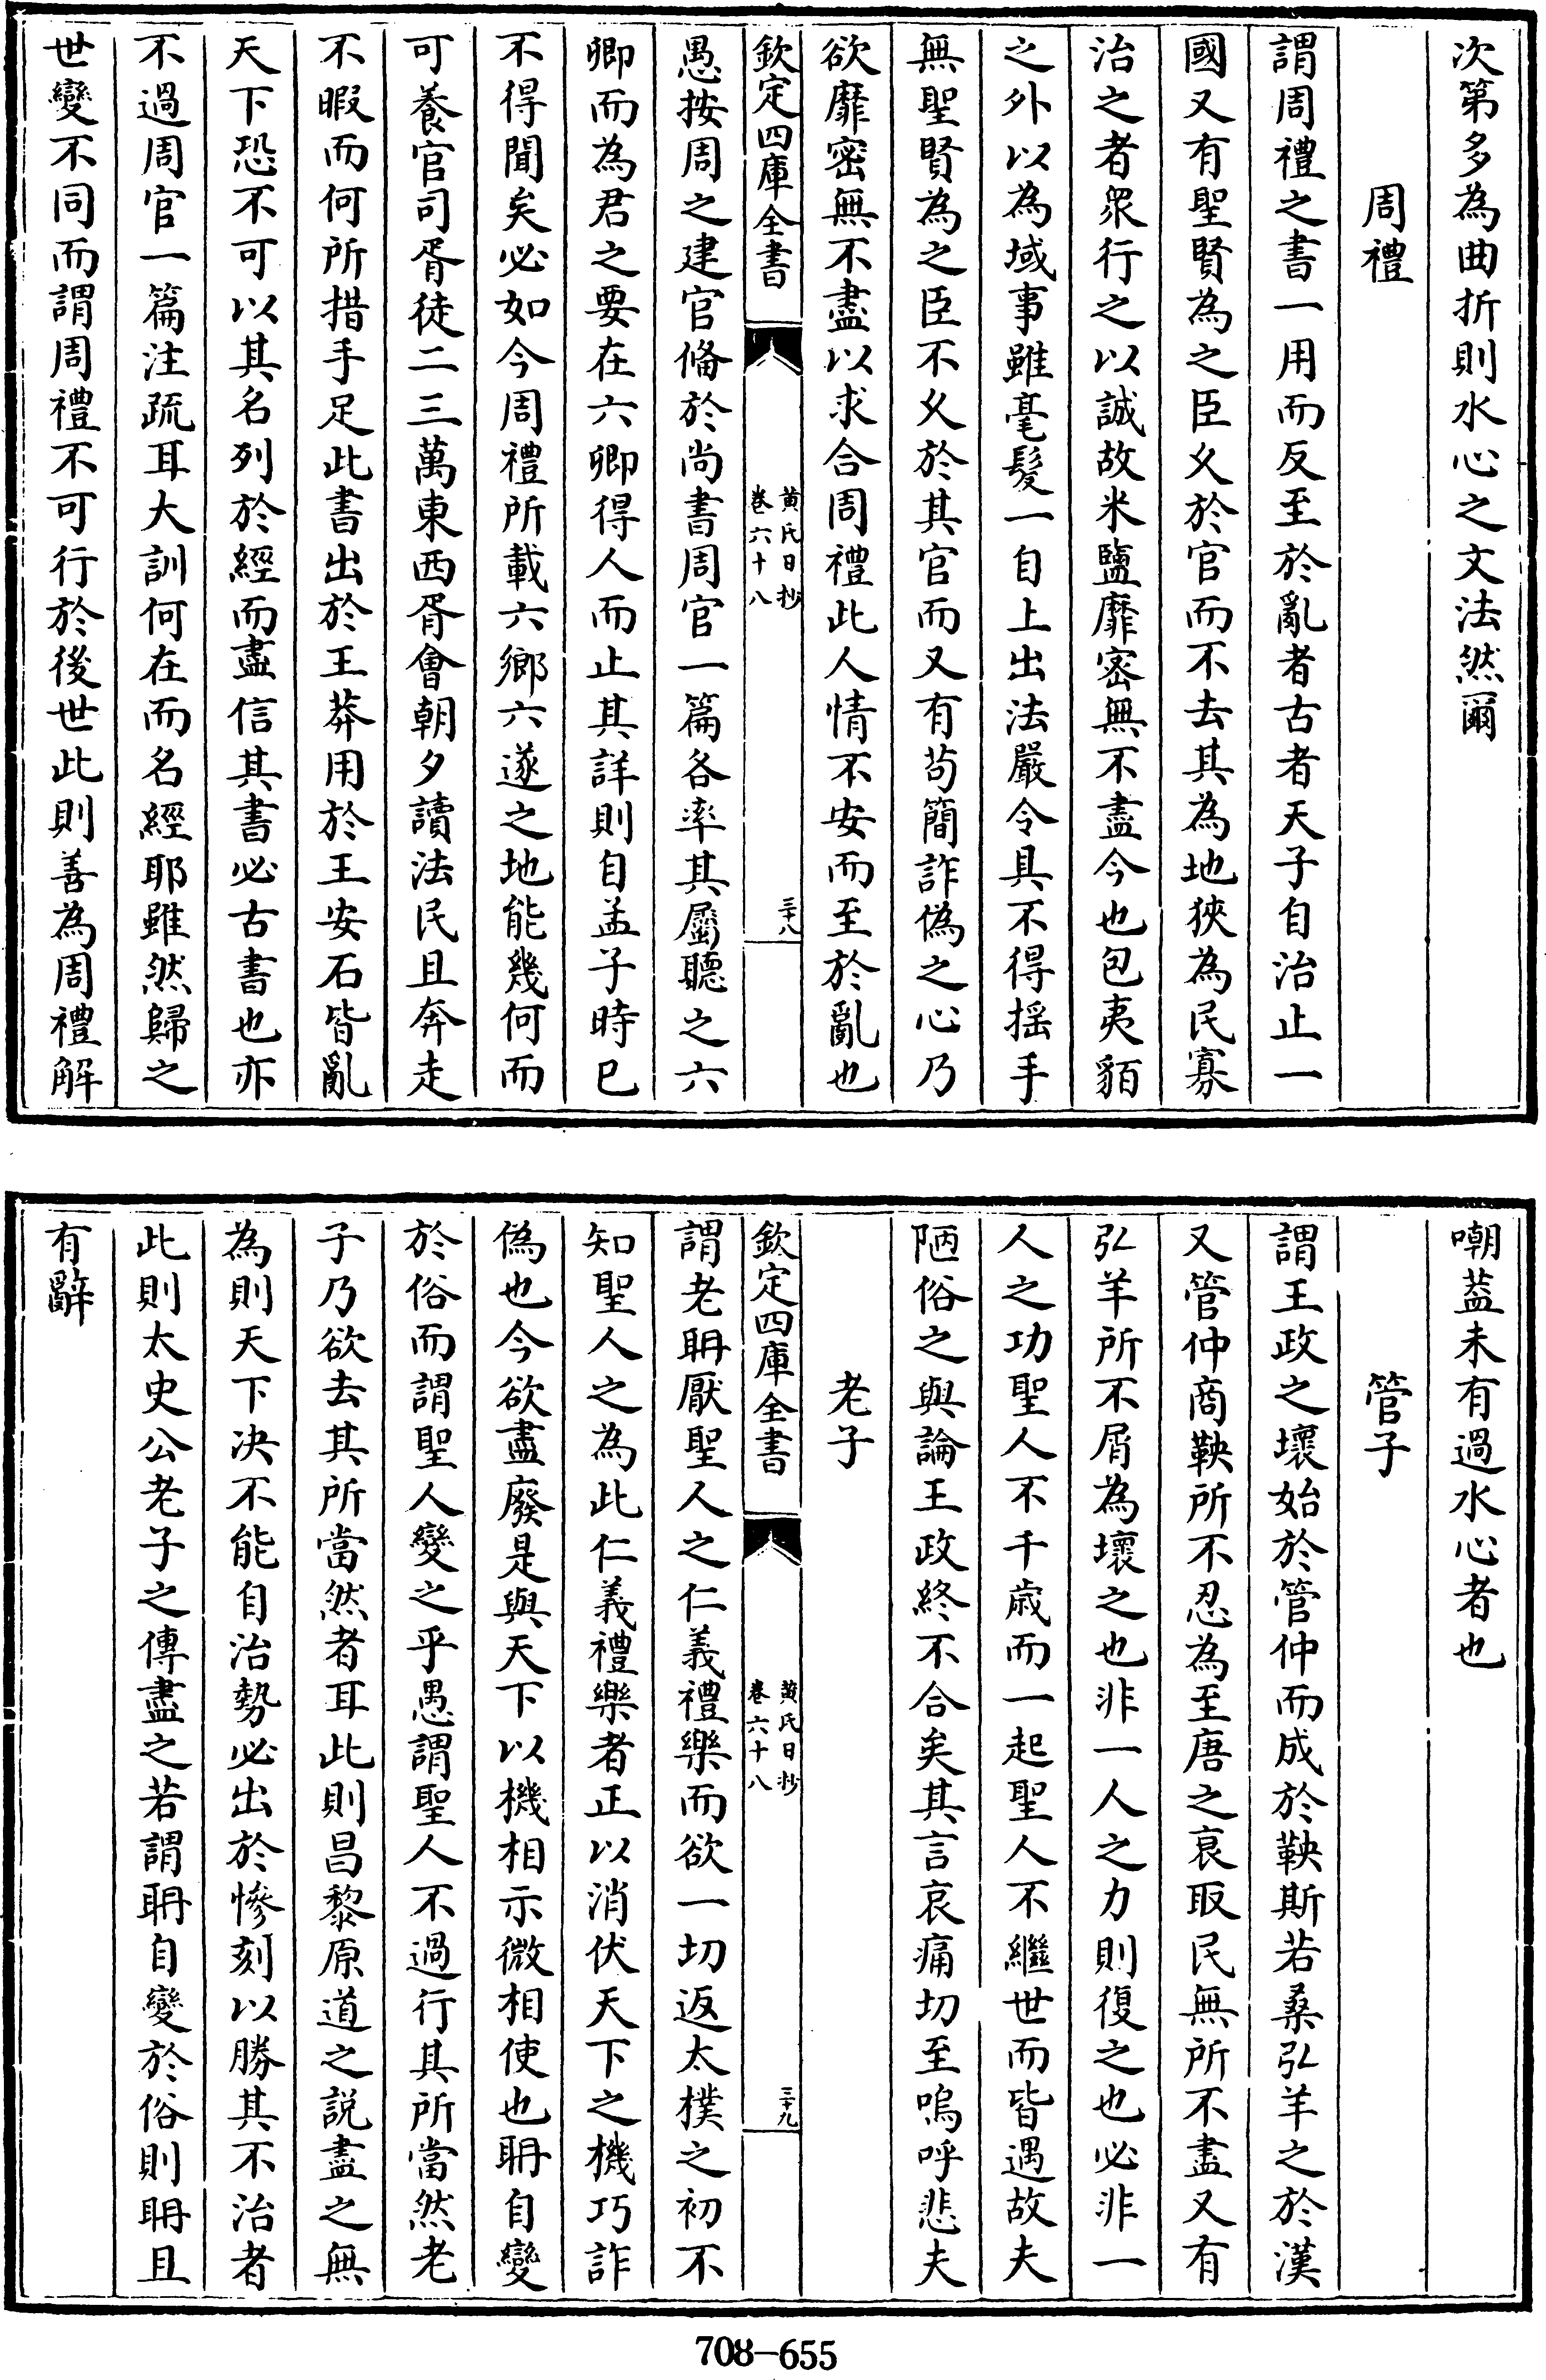 次第多為曲折則水心之文法然爾
周禮
謂周禮之書一用而反至於亂者古者天子自治止一
國又有聖賢為之臣乆於官而不去其為地狹為民寡
治之者衆行之以誠故米鹽靡密無不盡今也包夷貊
之外以為域事雖毫髮一自上出法嚴令具不得揺手
無聖賢為之臣不乆於其官而又有苟簡詐偽之心乃
欲靡密無不盡以求合周禮此人情不安而至於亂也
欽定四庫全書
黄氏日抄
卷六十八
三十八
愚按周之建官俻於尚書周官一篇各率其屬聽之六
卿而為君之要在六卿得人而止其詳則自孟子時已
不得聞矣必如今周禮所載六鄉六遂之地能幾何而
可養官司胥徒二三萬東西胥會朝夕讀法民且奔走
不暇而何所措手足此書出於王莽用於王安石皆亂
天下恐不可以其名列於經而盡信其書必古書也亦
不過周官一篇注疏耳大訓何在而名經耶雖然歸之
世變不同而謂周禮不可行於後世此則善為周禮解
嘲葢未有過水心者也
管子
謂王政之壞始於管仲而成於鞅斯若桑弘羊之於漢
又管仲商鞅所不忍為至唐之衰取民無所不盡又有
弘羊所不屑為壞之也非一人之力則復之也必非一
人之功聖人不千歳而一起聖人不繼世而皆遇故夫
陋俗之與論王政終不合矣其言哀哀痛切至嗚呼悲夫
老子
欽定四庫全書
黄氏日抄
卷六十八
三十九
謂老耼厭聖人之仁義禮樂而欲一切返太樸之初不
知聖人之為此仁義禮樂者正以消伏天下之機巧詐
偽也今欲盡廢是與天下以機相示微相使也耼自變
於俗而謂聖人變之乎愚謂聖人不過行其所當然老
子乃欲去其所當然者耳此則昌黎原道之説盡之無
為則天下決不能自治勢必出於慘刻以勝其不治者
此則太史公老子之傳盡之若謂耼自變於俗則耼且
有辭
708-655